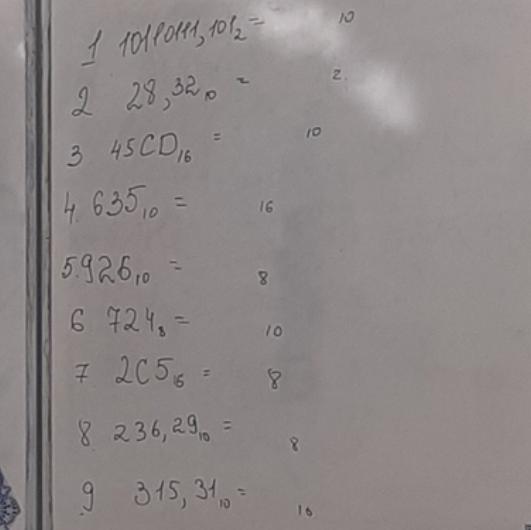 1 10110111,101₂ = 10
2 28,32₁₀ = 2.
3 45CD₁₆ = 10
4. 635₁₀ = 16
5. 926₁₀ = 8
6 724₈ = 10
7 2C5₁₆ = 8
8 236,29₁₀ = 8
9 315,31₁₀ = 16